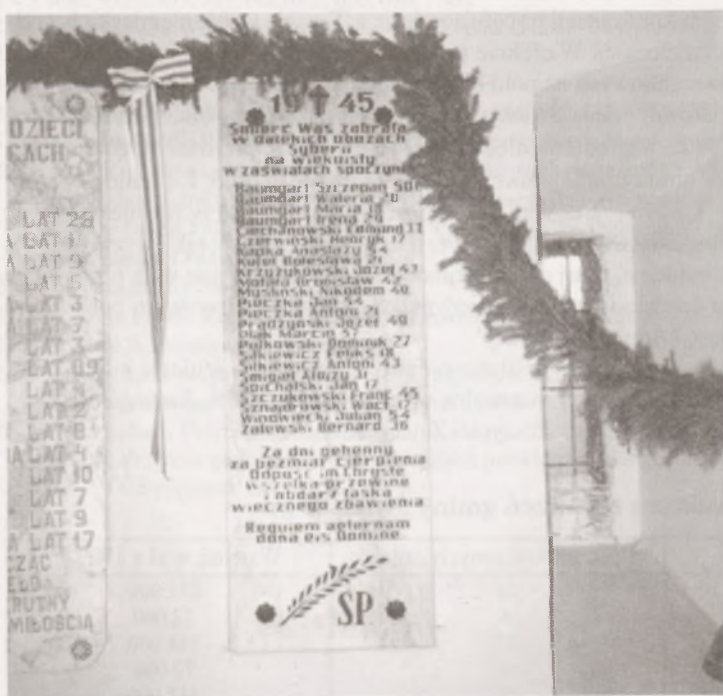 DZIECI
CACH
LAT 28
LAT 1
A LAT 9
LAT 5
LAT 3
A LAT 7
LAT 3
LAT
LAT 4
LAT 2
LAT 8
LAT 4
LAT 10
LAT 7
LAT 9
A LAT 17
CZĄC
RUTNY
MIŁOŚCIĄ
19 45
Śmierć Was zabrała
w dalekich obozach
Syberii
na wiekuisty
w zaświatach spoczynek
Baumgart Szczepan
Baumgart Waleria
Baumgart Maria 18
Baumgart Irena
Ciechanowski Edmund
Czerwiński Henryk 17
Kapka Anastazy 54
Bolesława 21
Krzyżykowski Józef 43
Bronisław 42
Myśliński Nikodem 40
Pieczka Jan 54
Pieczka Antoni 21
Prądzyński Józef 49
Ptak Marcin 57
Pułkowski Dominik 27
Silkiewicz Feliks 18
Silkiewicz Antoni 43
Śmigiel Alojzy 31
Spichalski Jan 17
Szczukowski Franc. 45
Sznajdrowski Wacł. 17
Winowiecki Julian 54
Zalewski Bernard 36
Za dni gehenny
za bezmiar cierpienia
Odpuść im Chryste
wszelką przewinę
i obdarz łaską
wiecznego zbawienia
Requiem aeternam
dona eis Domine
SP